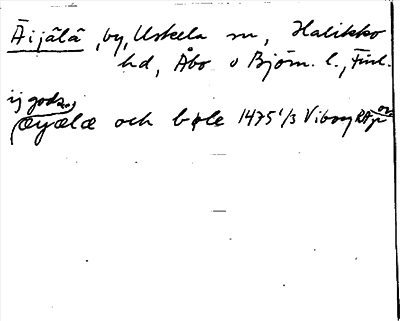 Äijälä, by, Uskela sn, Halikko
hd, Åbo o Björn. l., Finl.
ij gods
æyælæ och bøle 1475 1/3 Viborg RA p or